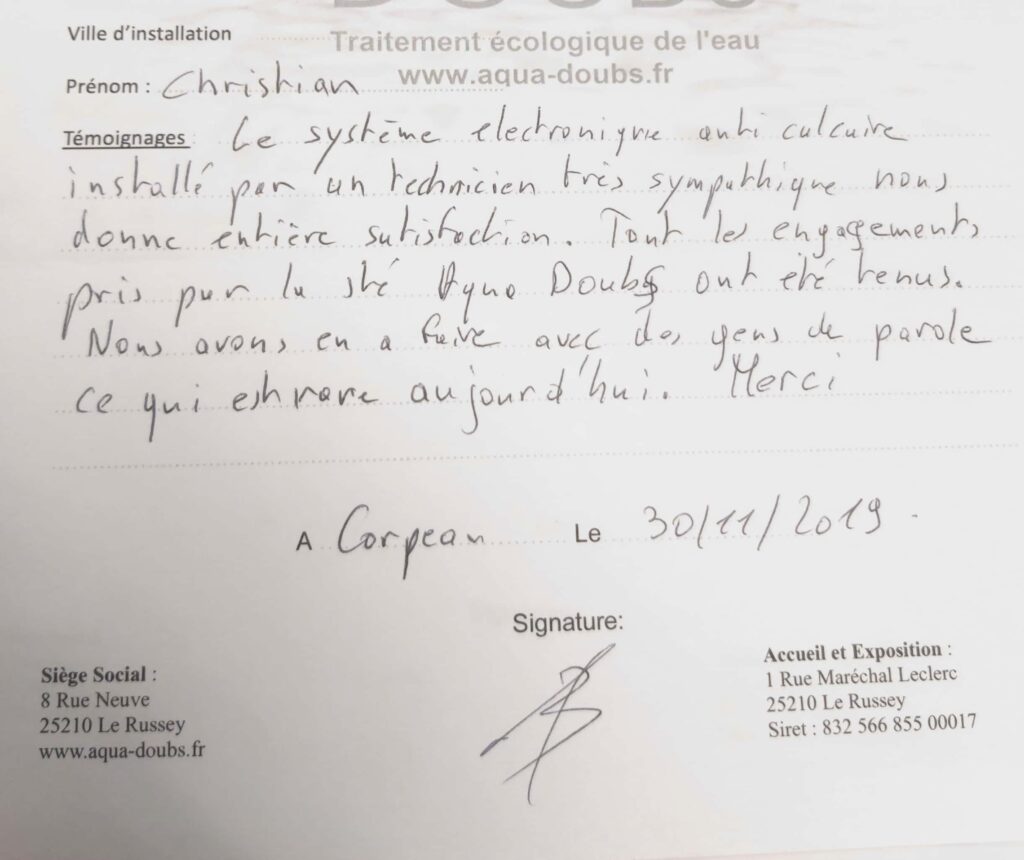 DOUBS
Ville d'installation
Traitement écologique de l'eau
www.aqua-doubs.fr
Prénom : Christian
Témoignages : Le système electronique anti calcaire
installé par un technicien très sympathique nous
donne entière satisfaction. Tout les engagements
pris par la sté Aqua Doubs ont été tenus.
Nous avons eu a faire avec des gens de parole
ce qui est rare aujourd'hui. Merci
A Corpeau Le 30/11/2019.
Signature:
Siège Social :
8 Rue Neuve
25210 Le Russey
www.aqua-doubs.fr
Accueil et Exposition :
1 Rue Maréchal Leclerc
25210 Le Russey
Siret : 832 566 855 00017